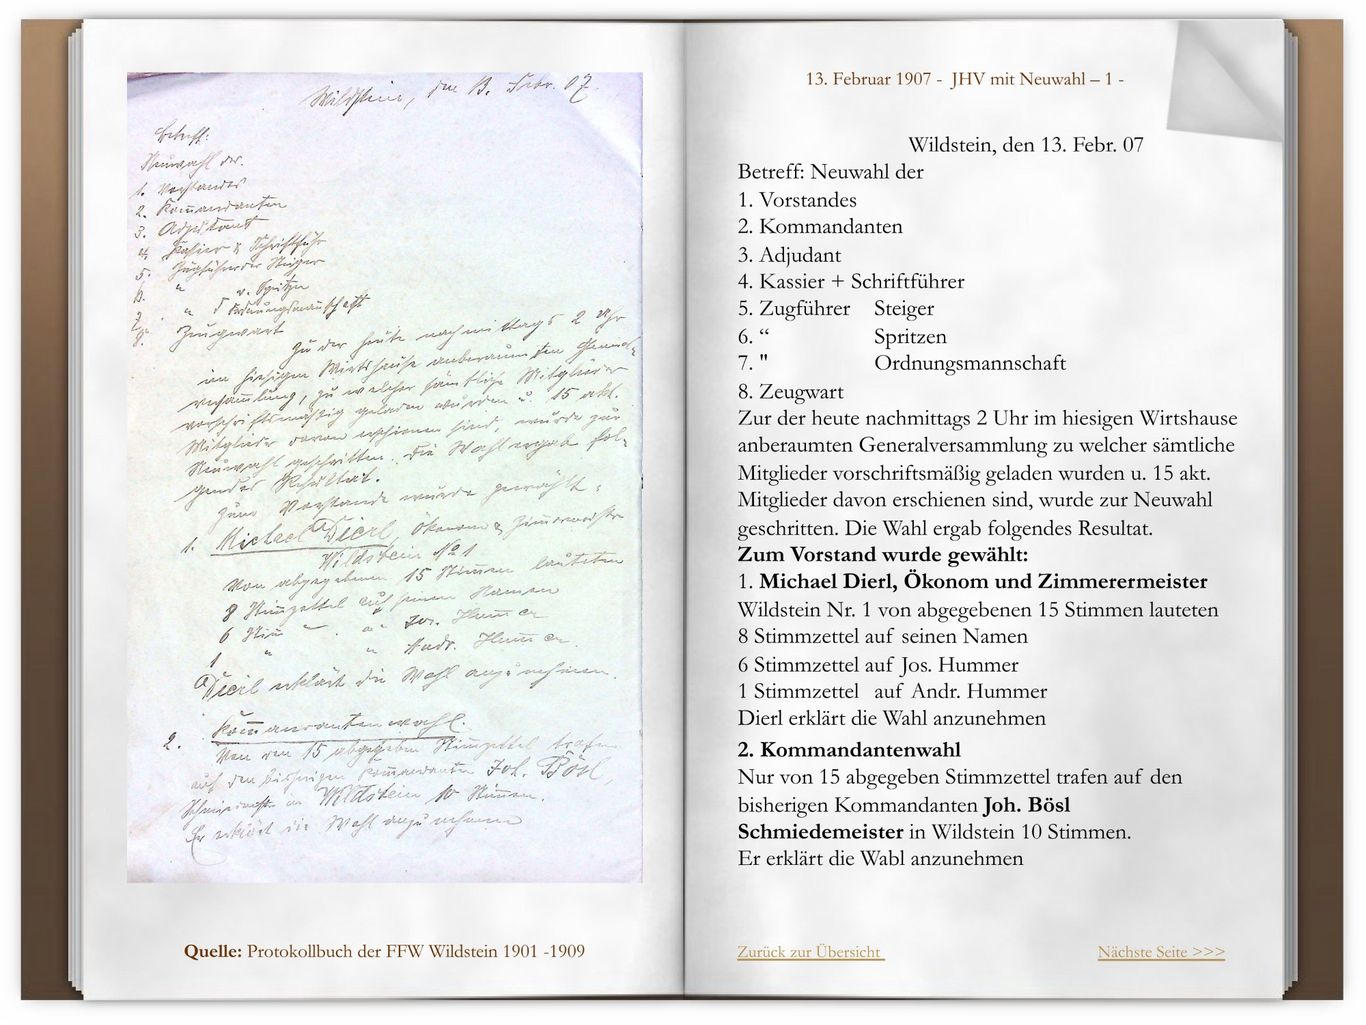 Wildstein, den 13. Febr. 07
Betreff:
Neuwahl der
1. Vorstandes
2. Kommandanten
3. Adjudant
4. Kassier & Schriftführ
5. Zugführer der Steiger
6. " v. Spritzen
7. " " Ordnungsmannschaft
8. Zeugwart
Zu der heute nachmittags 2 Uhr
im hiesigen Wirtshause anberaumten General-
versammlung, zu welcher sämtliche Mitglieder
vorschriftsmäßig geladen wurden u. 15 akt.
Mitglieder davon erschienen sind, wurde zur
Neuwahl geschritten. Die Wahl ergab fol-
gendes Resultat.
Zum Vorstande wurde gewählt:
1. Michael Dierl, Ökonom & Zimmermeister
Wildstein No 1
Von abgegebenen 15 Stimmen lauteten
8 Stimmzettel auf seinen Namen
6 Stim " Jos. Hummer
1 " " Andr. Hummer
Dierl erklärt die Wahl anzunehmen.
2. Kommandantenwahl.
Von den 15 abgegeben Stimmzettel trafen
auf den bisherigen Kommandanten Joh. Bösl,
in Wildstein 10 Stimmen.
Er erklärt die Wahl anzunehmen
Quelle: Protokollbuch der FFW Wildstein 1901 -1909
13. Februar 1907 - JHV mit Neuwahl – 1 -
Wildstein, den 13. Febr. 07
Betreff: Neuwahl der
1. Vorstandes
2. Kommandanten
3. Adjudant
4. Kassier + Schriftführer
5. Zugführer Steiger
6. “ Spritzen
7. " Ordnungsmannschaft
8. Zeugwart
Zur der heute nachmittags 2 Uhr im hiesigen Wirtshause
anberaumten Generalversammlung zu welcher sämtliche
Mitglieder vorschriftsmäßig geladen wurden u. 15 akt.
Mitglieder davon erschienen sind, wurde zur Neuwahl
geschritten. Die Wahl ergab folgendes Resultat.
Zum Vorstand wurde gewählt:
1. Michael Dierl, Ökonom und Zimmerermeister
Wildstein Nr. 1 von abgegebenen 15 Stimmen lauteten
8 Stimmzettel auf seinen Namen
6 Stimmzettel auf Jos. Hummer
1 Stimmzettel auf Andr. Hummer
Dierl erklärt die Wahl anzunehmen
2. Kommandantenwahl
Nur von 15 abgegeben Stimmzettel trafen auf den
bisherigen Kommandanten Joh. Bösl
Schmiedemeister in Wildstein 10 Stimmen.
Er erklärt die Wabl anzunehmen
Zurück zur Übersicht
Nächste Seite >>>